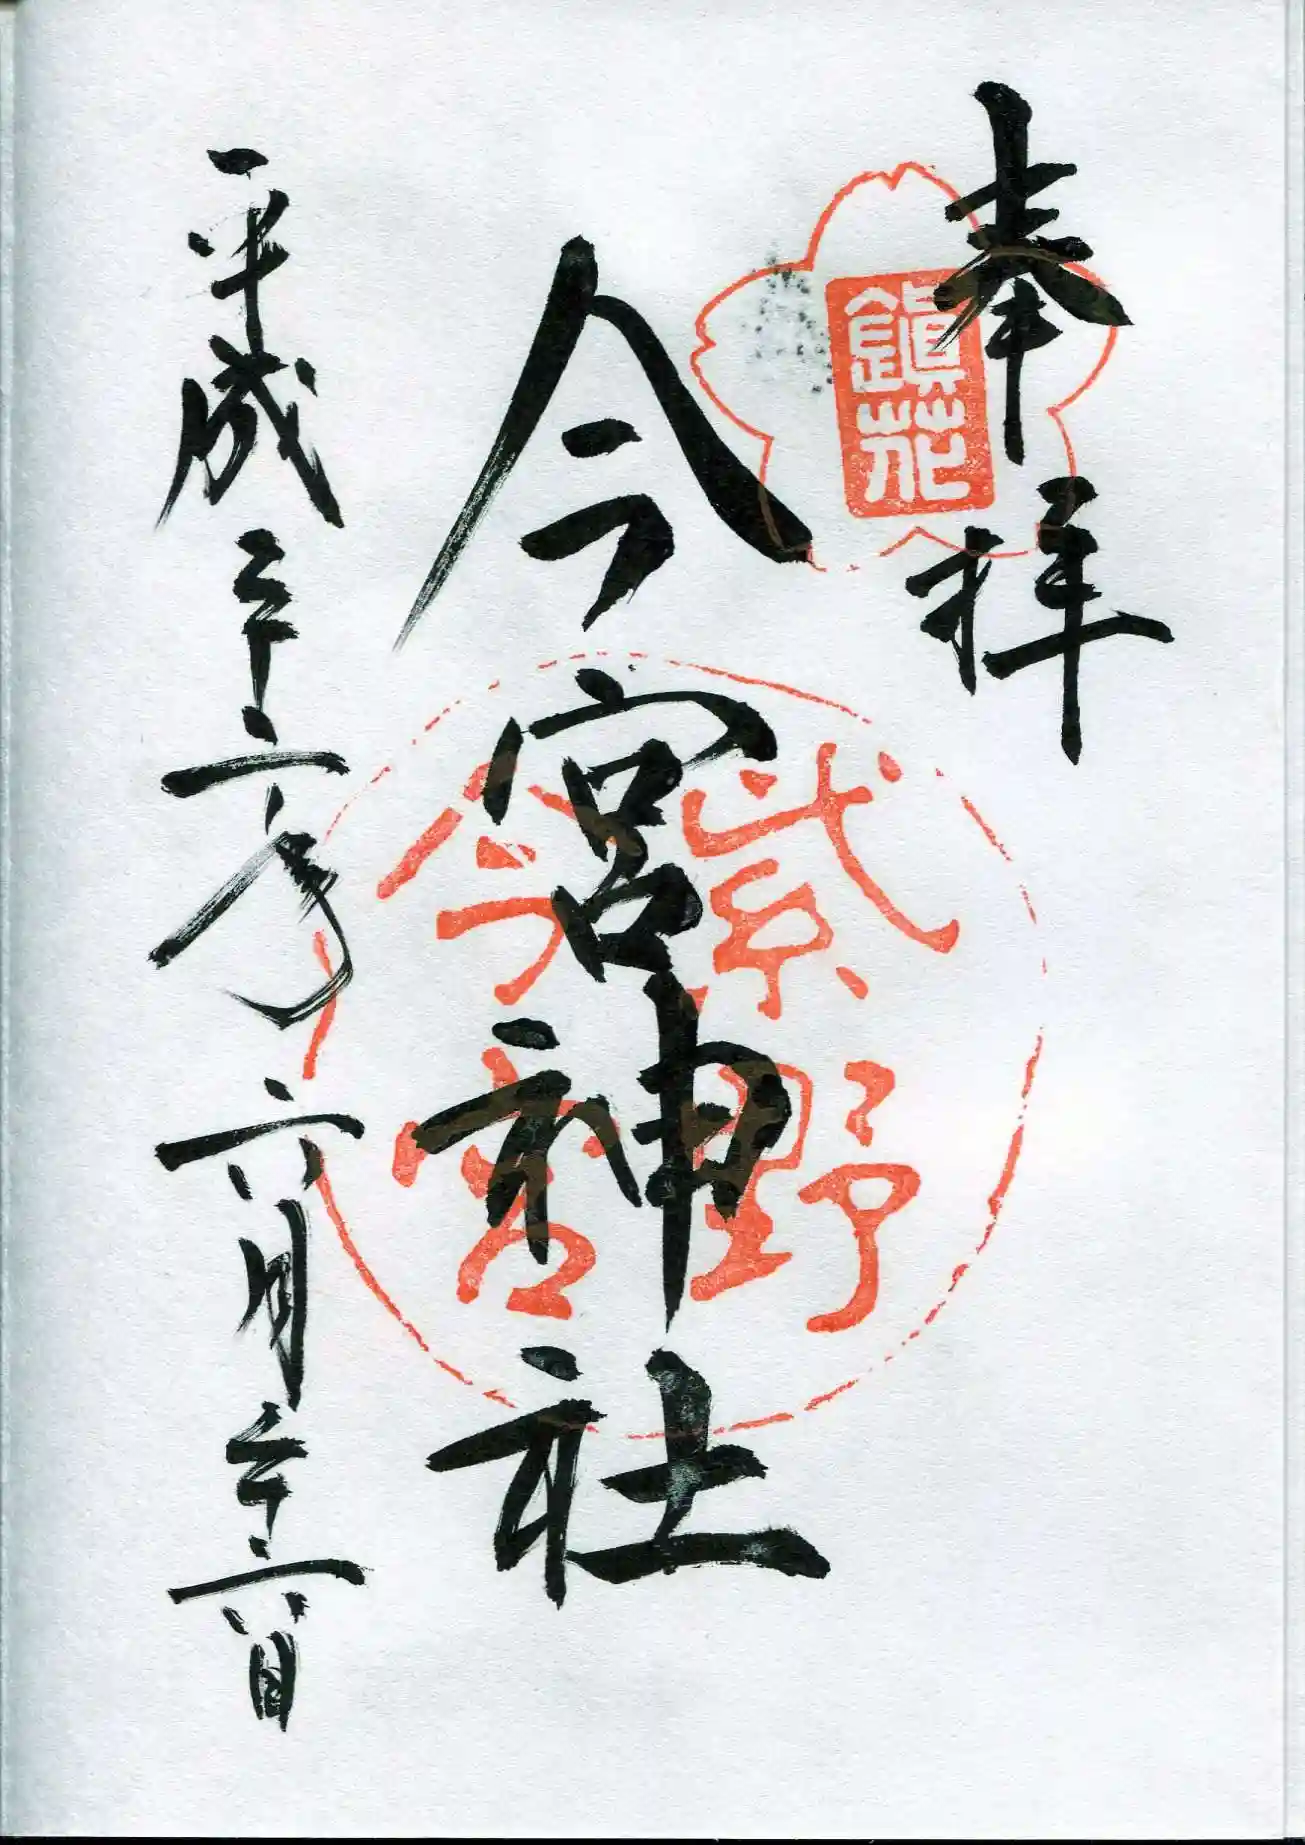 奉拝
鎭花
今宮神社
紫野
今宮
平成二十六年六月二十六日